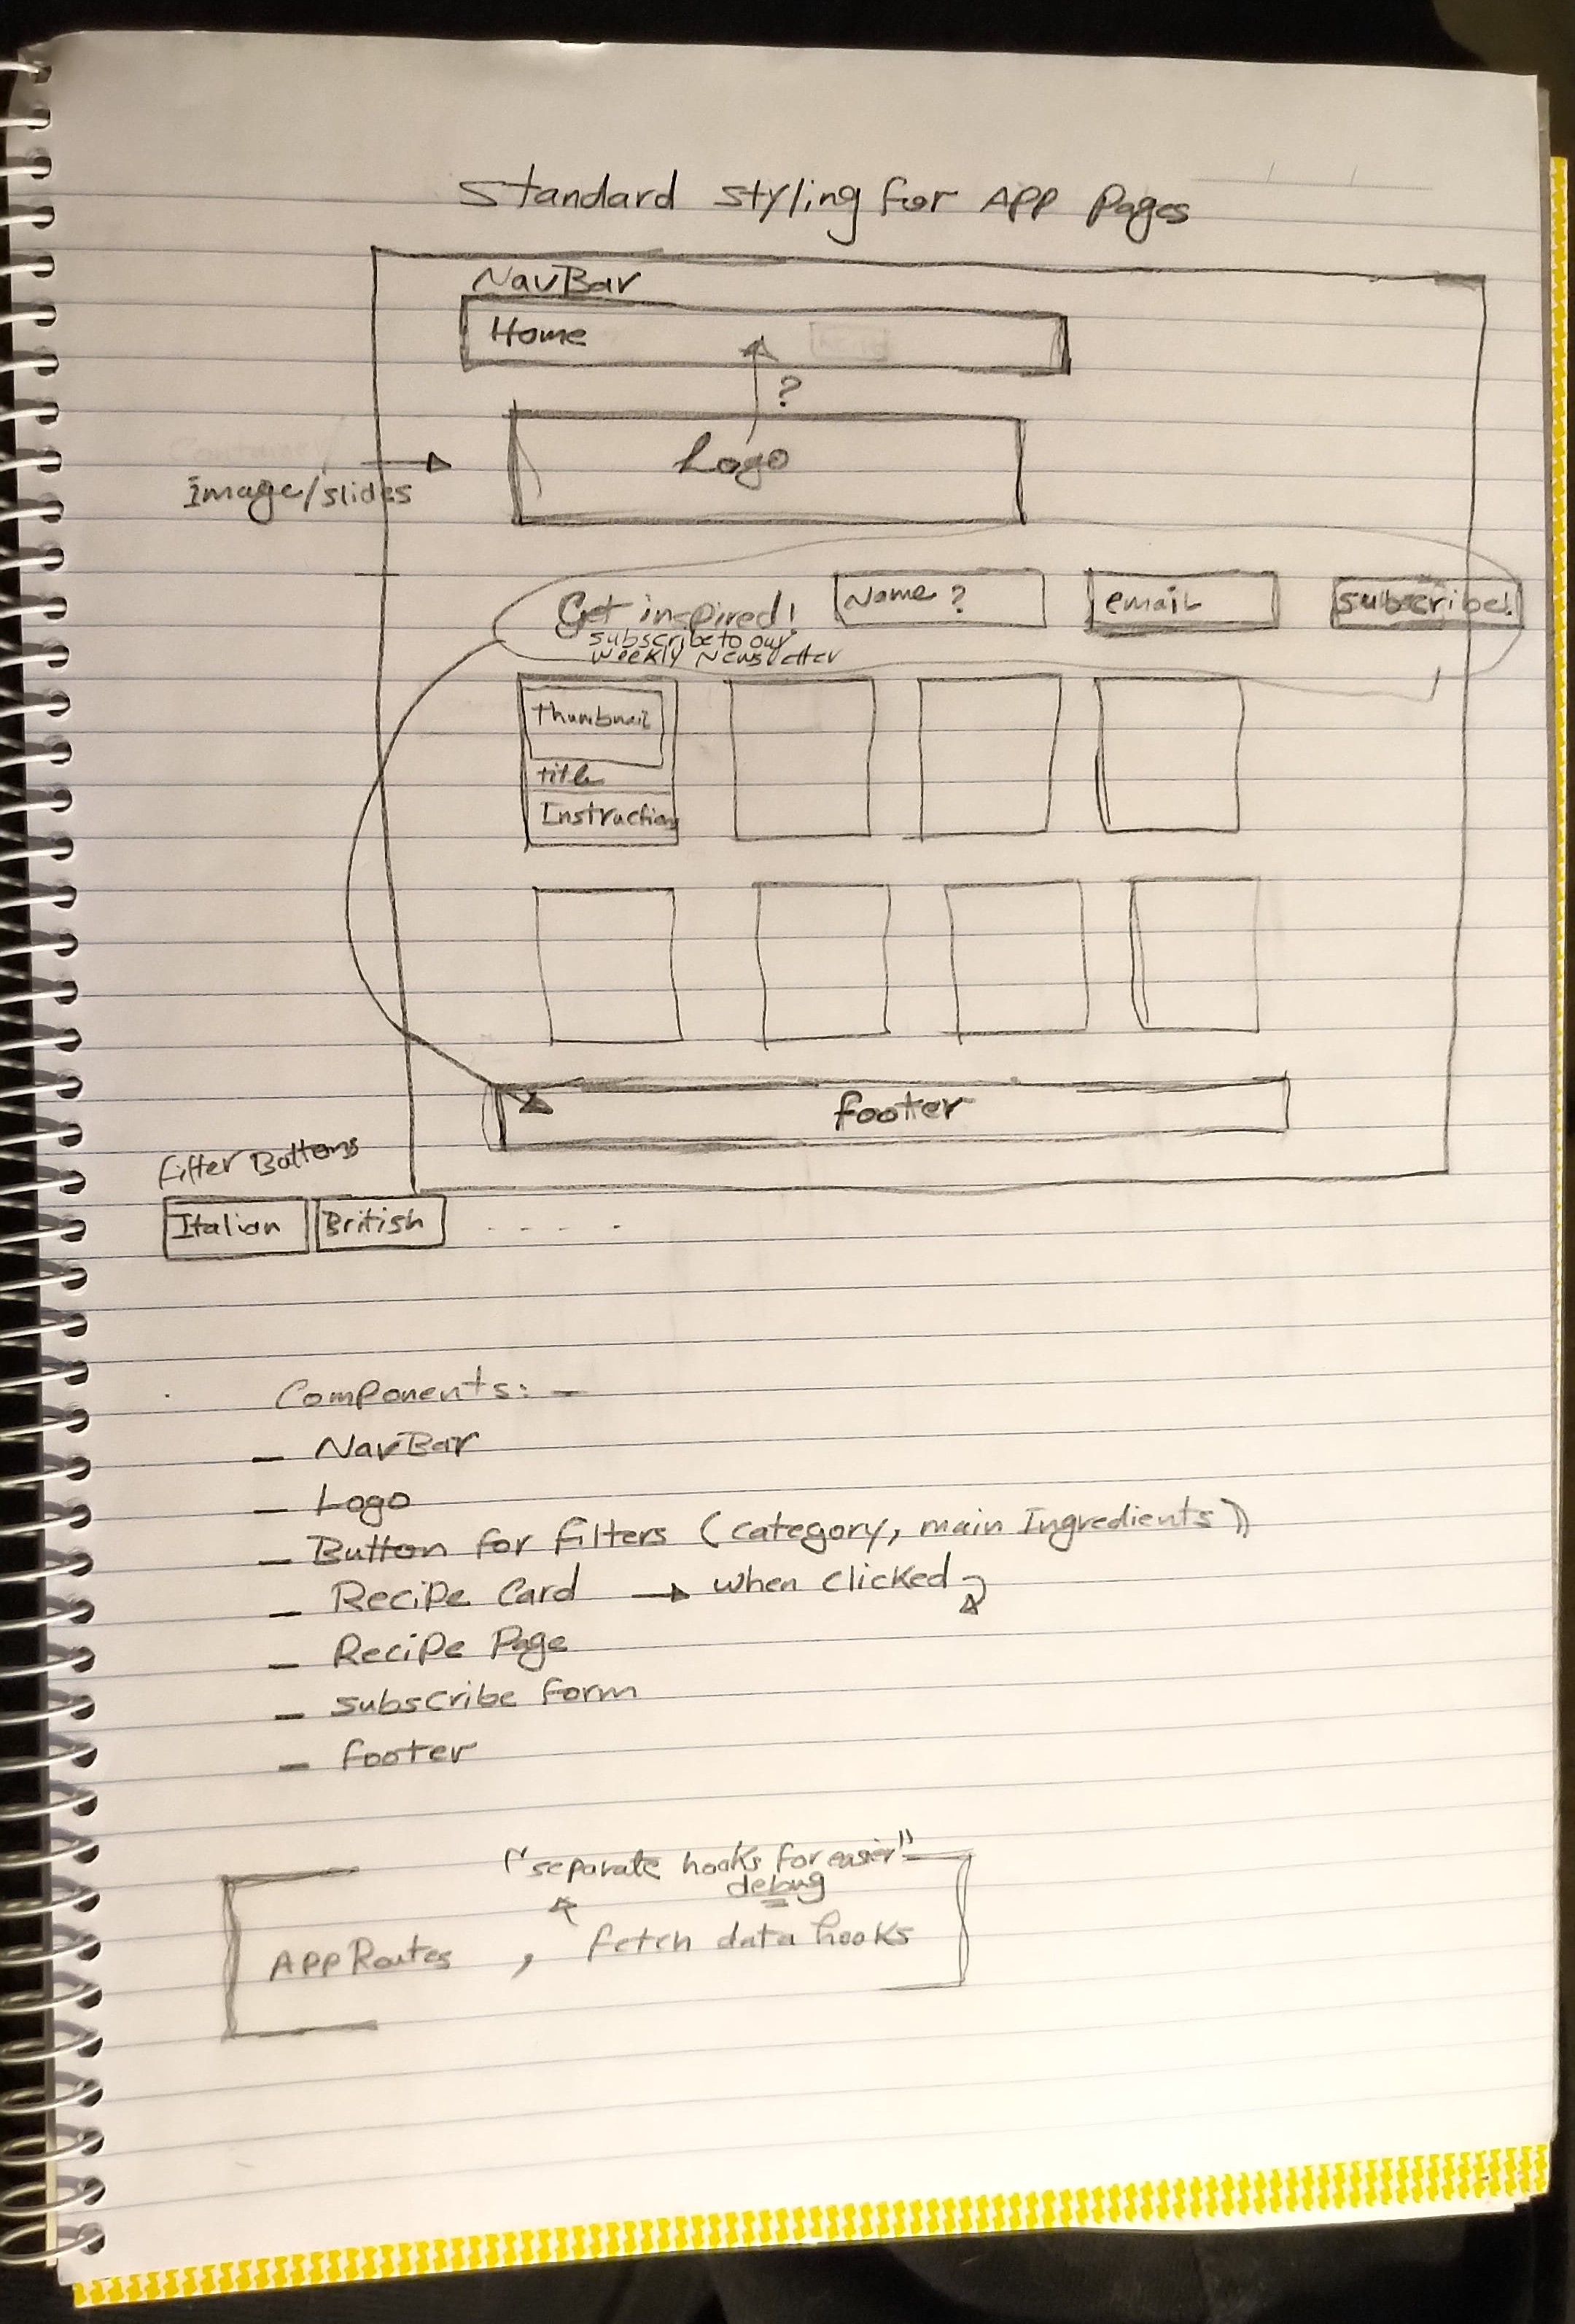 Standard styling for APP Pages
NavBar
Home
?
Logo
Image/slides
Get inspired!
Name ?
email
subscribe!
subscribe to our
weekly Newsletter
Thumbnail
title
Instructions
footer
Filter Buttons
Italian
British
. . . . .
Components: -
- NavBar
- Logo
- Button for filters (category, main Ingredients)
- Recipe Card → when clicked
- Recipe Page
- subscribe form
- footer
("separate hooks for easier"
debug
APP Routes , fetch data hooks